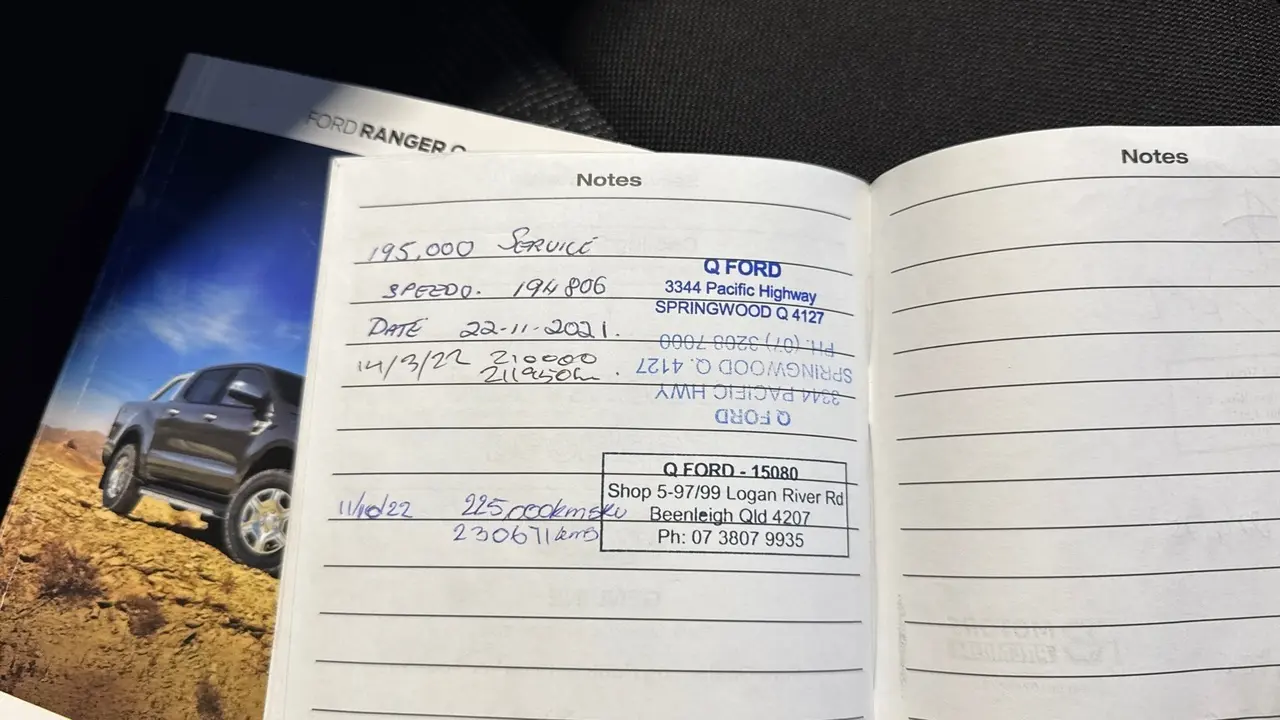 FORD RANGER
Notes
195,000 SERVICE
SPEEDO. 194806
DATE 22-11-2021.
14/3/22 210000
211950km.
Q FORD
3344 Pacific Highway
SPRINGWOOD Q 4127
Q FORD
3344 PACIFIC HWY
SPRINGWOOD Q. 4127
PH. (07) 3208 7000
11/10/22 225,000km
230671kms
Q FORD - 15080
Shop 5-97/99 Logan River Rd
Beenleigh Qld 4207
Ph: 07 3807 9935
Notes